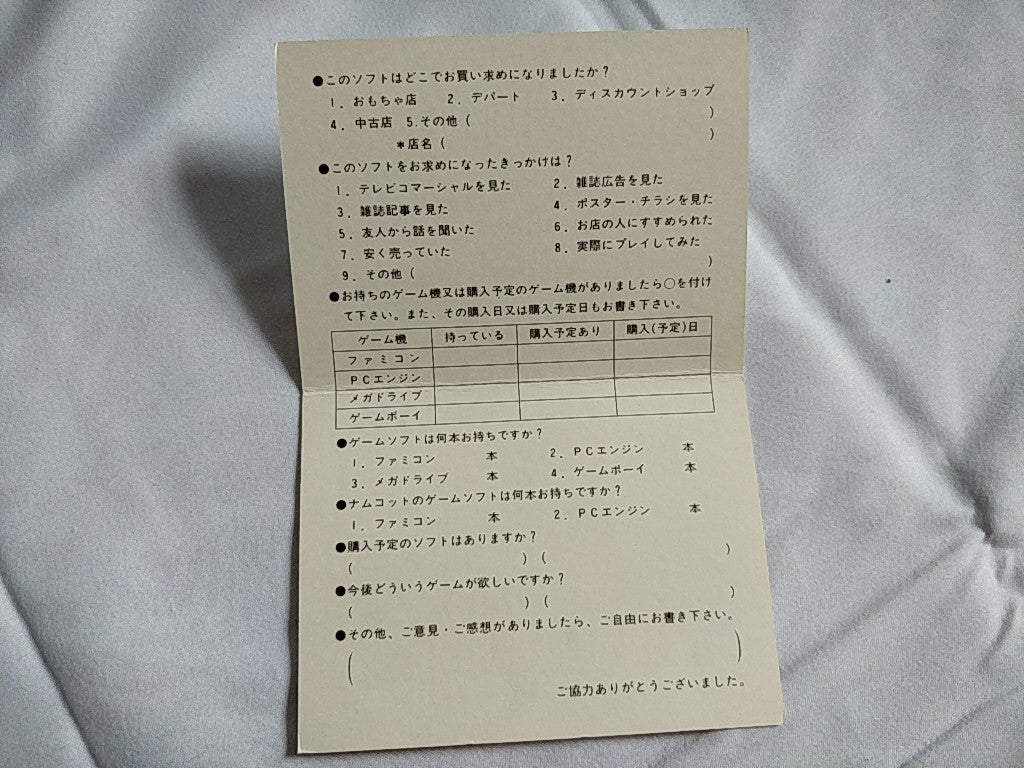 ●このソフトはどこでお買い求めになりましたか？
1．おもちゃ店　2．デパート　3．ディスカウントショップ
4．中古店　5.その他（　　　　　　　　　　）
＊店名（　　　　　　　　　　）
●このソフトをお求めになったきっかけは？
1．テレビコマーシャルを見た　2．雑誌広告を見た
3．雑誌記事を見た　4．ポスター・チラシを見た
5．友人から話を聞いた　6．お店の人にすすめられた
7．安く売っていた　8．実際にプレイしてみた
9．その他（　　　　　　　　　　）
●お持ちのゲーム機又は購入予定のゲーム機がありましたら○を付け
て下さい。また、その購入日又は購入予定日もお書き下さい。
ゲーム機　持っている　購入予定あり　購入(予定)日
ファミコン
PCエンジン
メガドライブ
ゲームボーイ
●ゲームソフトは何本お持ちですか？
1．ファミコン　　本　2．PCエンジン　　本
3．メガドライブ　　本　4．ゲームボーイ　　本
●ナムコットのゲームソフトは何本お持ちですか？
1．ファミコン　　本　2．PCエンジン　　本
●購入予定のソフトはありますか？
（　　　　　　　　）（　　　　　　　　）
●今後どういうゲームが欲しいですか？
（　　　　　　　　）（　　　　　　　　）
●その他、ご意見・ご感想がありましたら、ご自由にお書き下さい。
（　　　　　　　　　　　　　　　　）
ご協力ありがとうございました。